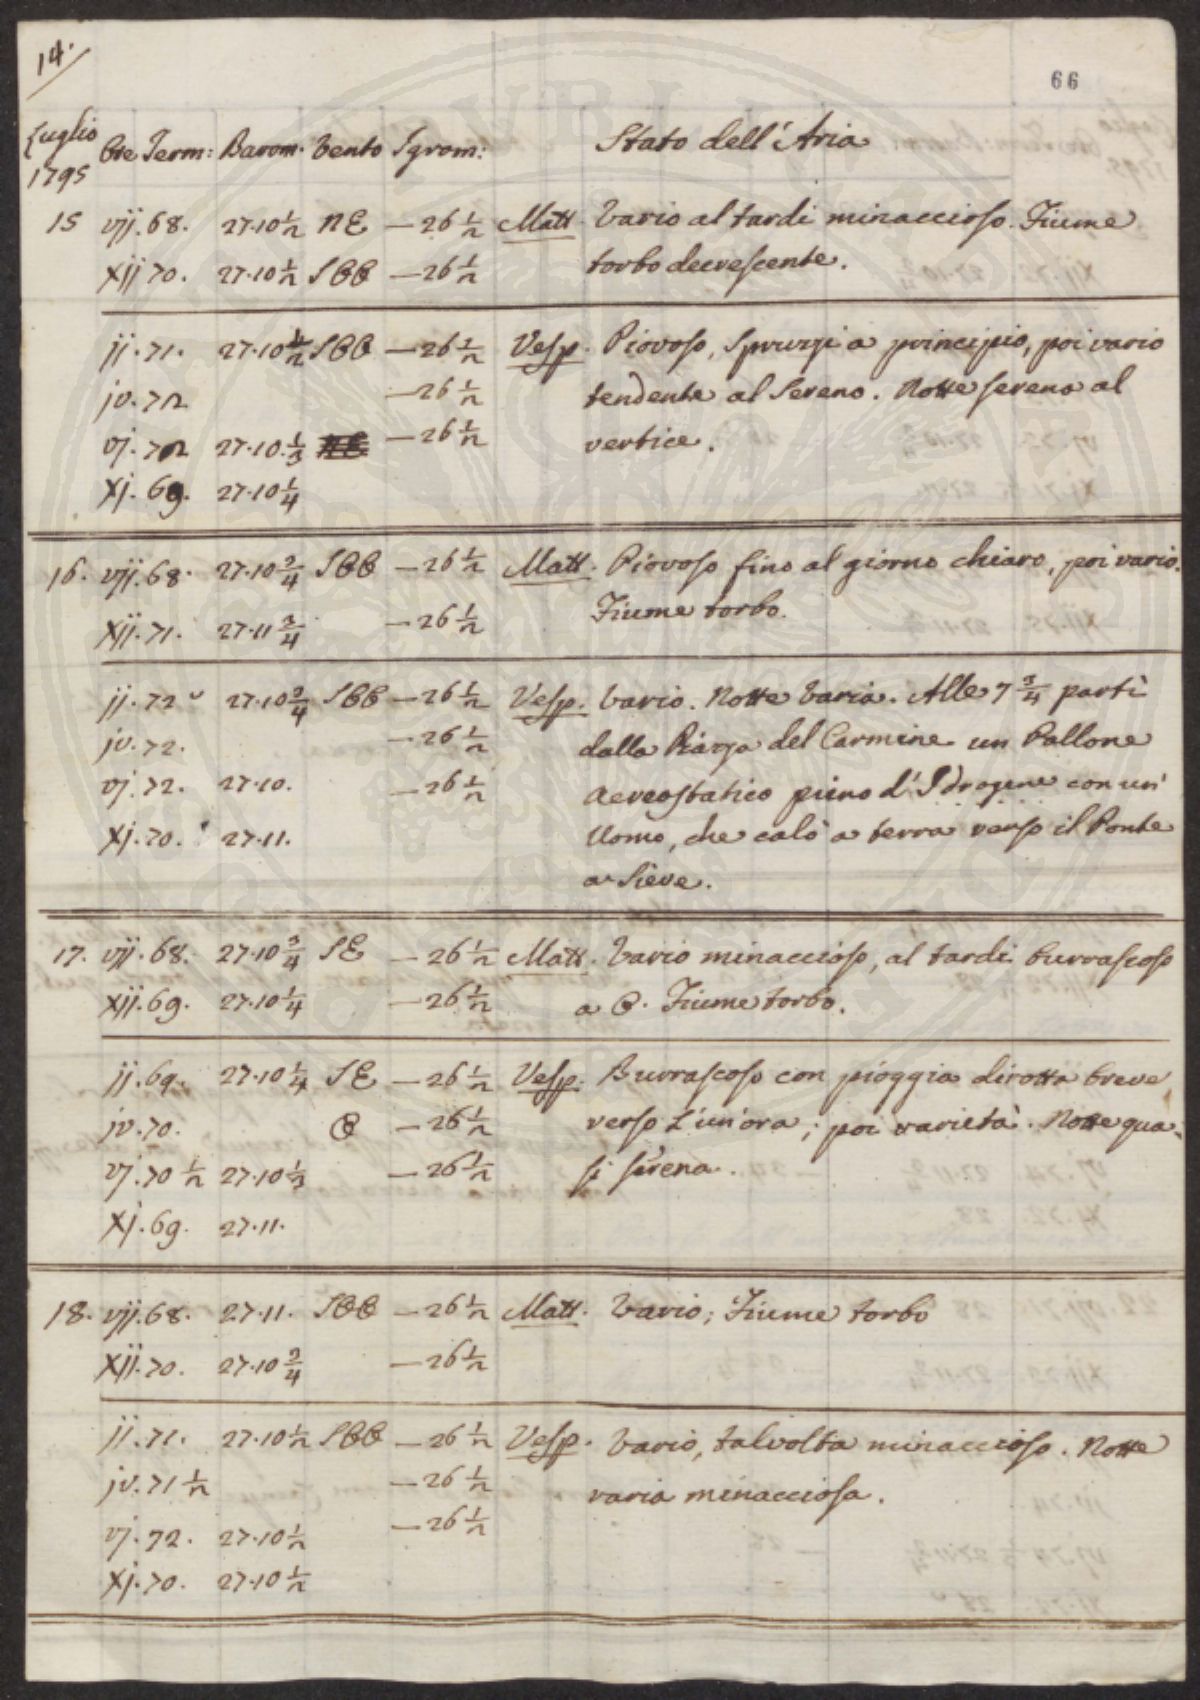 14.
66
Luglio 1795 Ore Term: Barom. Vento Igrom: Stato dell'Aria
15 vij. 68. 27.10 1/2 NE — 26 1/2 Matt. Vario al tardi minaccioso. Fiume
xij 70. 27.10 1/2 SOO — 26 1/2 torbo decrescente.
ij. 71. 27.10 1/2 SOO — 26 1/2 Vesp. Piovoso, Spruzzi a principio, poi vario
jv. 72 — 26 1/2 tendente al Sereno. Notte serena al
vj. 72 27.10. 1/3 — 26 1/2 vertice.
xj. 69. 27.10 1/4
16. vij. 68. 27.10 3/4 SOO — 26 1/2 Matt. Piovoso fino al giorno chiaro, poi vario.
xij. 71. 27.11 3/4 — 26 1/2 Fiume torbo.
ij. 72 27.10 3/4 SOO — 26 1/2 Vesp. Vario. Notte Varia. Alle 7 3/4 partì
jv. 72. — 26 1/2 dalla Piazza del Carmine un Pallone
vj. 72. 27.10. — 26 1/2 Aereostatico pieno d'Idrogene con un'
xj. 70. 27.11. Uomo, che calò a terra verso il Ponte
a Sieve.
17. vij. 68. 27.10 3/4 SE — 26 1/2 Matt. Vario minaccioso, al tardi burrascoso
xij. 69. 27.10 1/4 — 26 1/2 a O. Fiume torbo.
ij. 69. 27.10 1/4 SE — 26 1/2 Vesp. Burrascoso con pioggia dirotta breve
jv. 70. O — 26 1/2 verso l'un'ora; poi varietà. Notte qua-
vj. 70 1/2 27.10 1/2 — 26 1/2 si serena.
xj. 69. 27.11.
18. vij. 68. 27.11. SOO — 26 1/2 Matt. Vario; Fiume torbo
xij. 70. 27.10 3/4 — 26 1/2
ij. 71. 27.10 1/2 SOO — 26 1/2 Vesp. Vario, talvolta minaccioso. Notte
jv. 71 1/2 — 26 1/2 varia minacciosa.
vj. 72. 27.10 1/2 — 26 1/2
xj. 70. 27.10 1/2